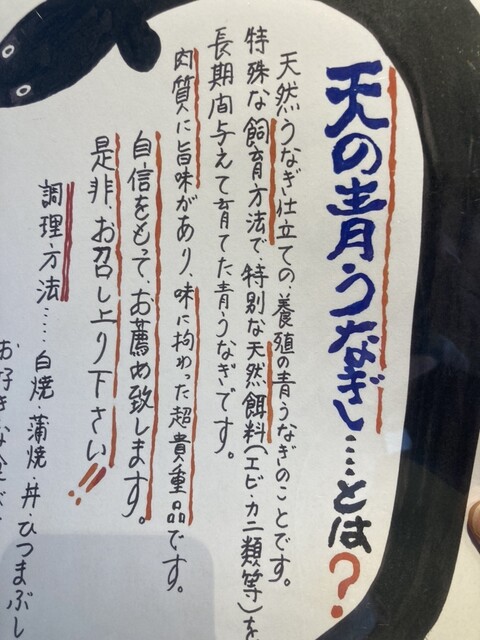 天の青うなぎ……とは?
天然うなぎ仕立ての、養殖の青うなぎのことです。
特殊な飼育方法で、特別な天然餌料(エビ・カニ類等)を
長期間与えて育てた青うなぎです。
肉質に旨味があり、味に拘わった超貴重品です。
自信をもって、お薦め致します。
是非、お召し上り下さい!!
調理方法……白焼・蒲焼・丼・ひつまぶし
お好きな